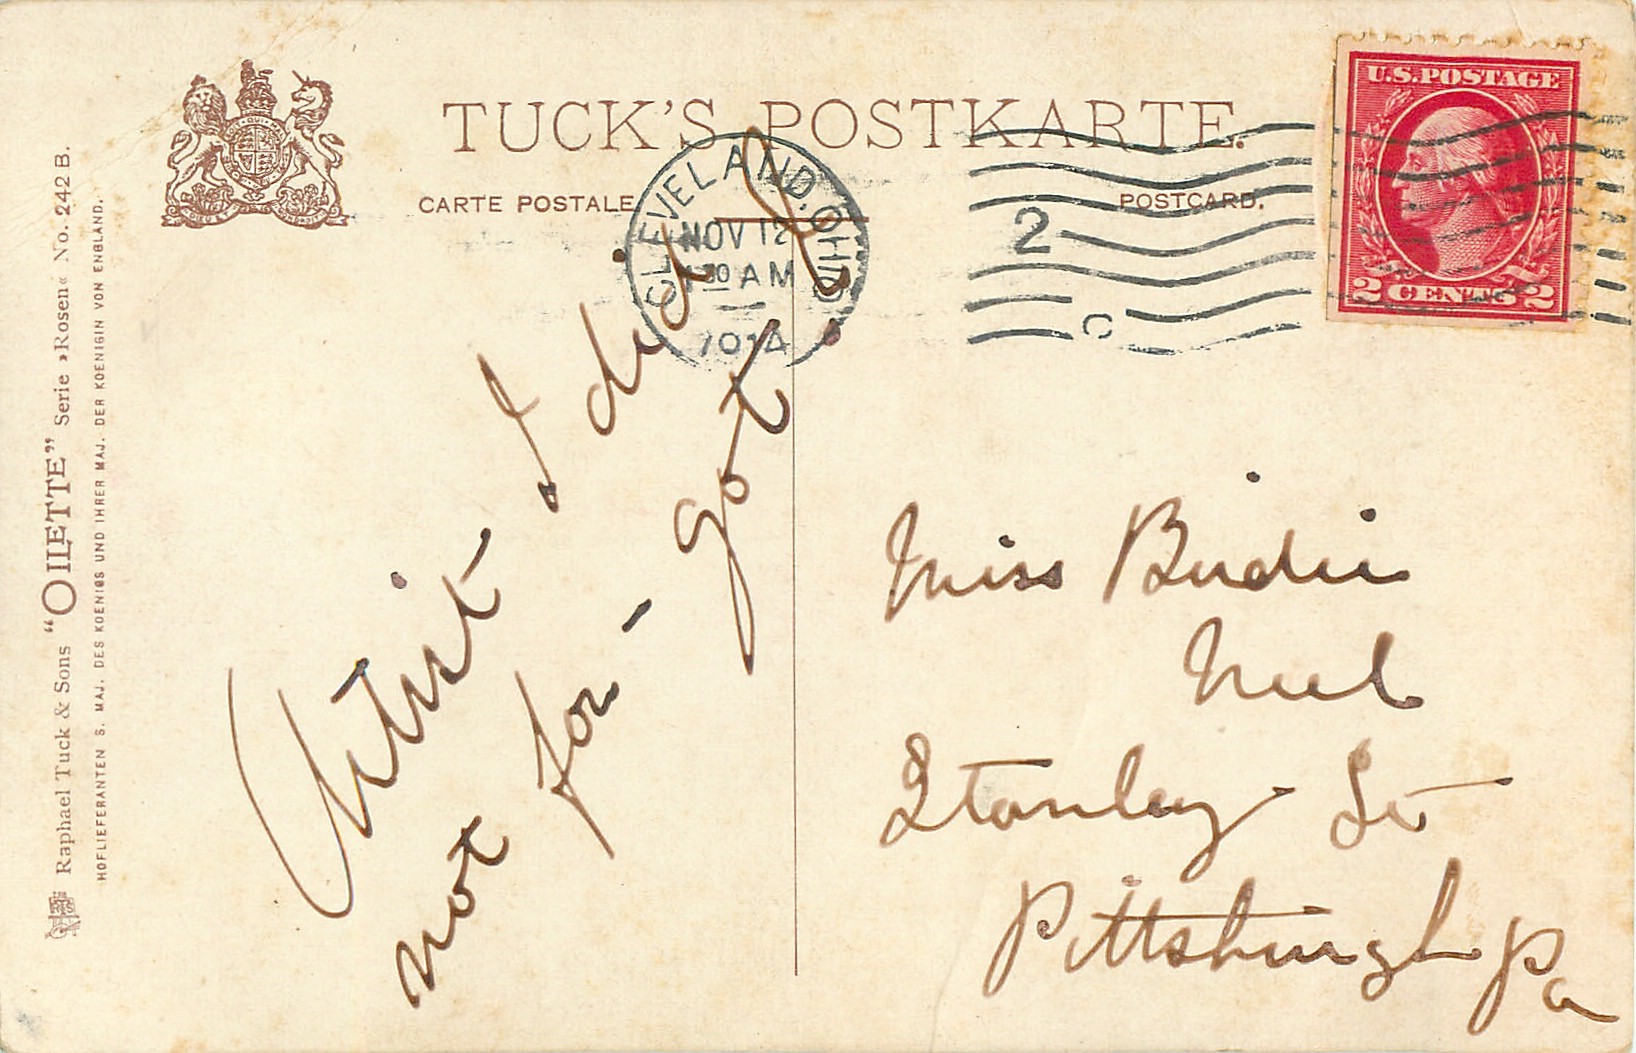 TUCK'S POSTKARTE.
CARTE POSTALE
POSTCARD.
CLEVELAND, OHIO
NOV 12
30 AM
1914
2
C
U.S. POSTAGE
2 CENTS 2
Raphael Tuck & Sons "OILETTE" Serie »Rosen« No. 242 B.
HOFLIEFERANTEN S. MAJ. DES KOENIGS UND IHRER MAJ. DER KOENIGIN VON ENGLAND.
I did
not for-got
Miss Birdie
Stanley St
Pittsburgh Pa